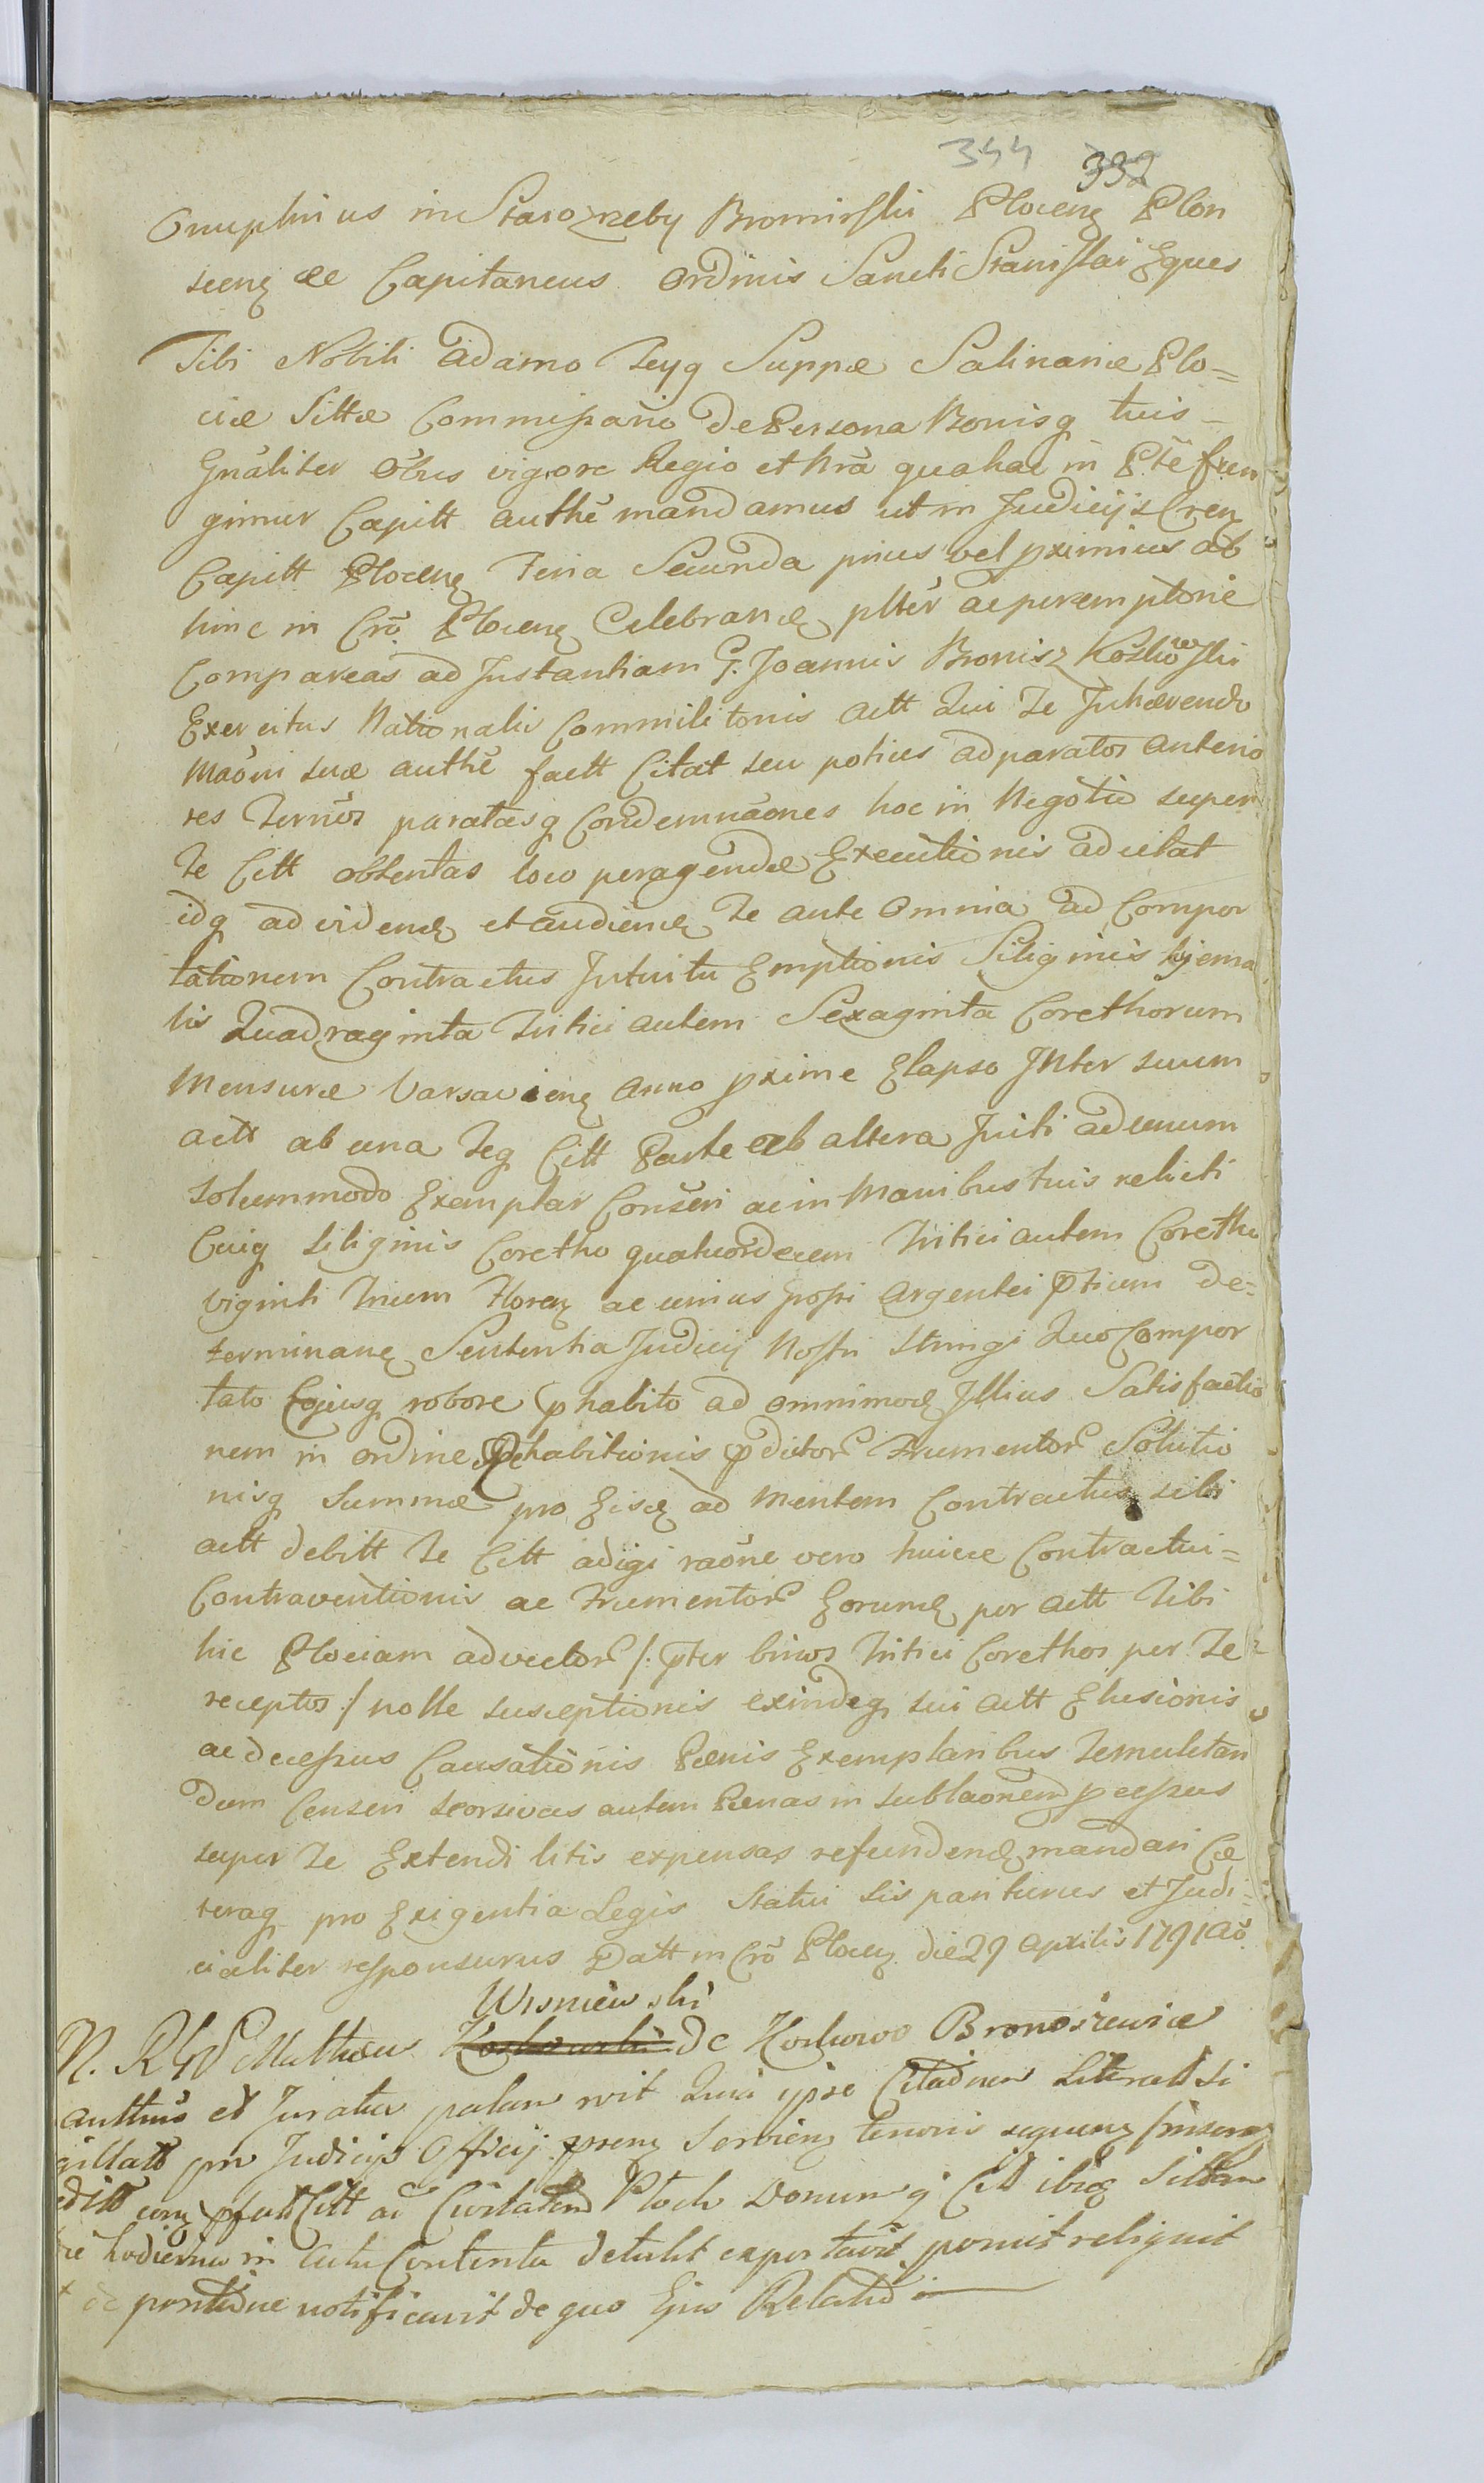 344 332
Onuphrius in Starozreby Bromirski Plocenẹ Plon
scenẹ &c Capitaneus Ordinis Sancti Stanislai Eques
Tibi Nobili Adamo Teyg Suppæ Salinariæ Plo=
ciæ Sittæ Commissario De Persona Bonisq tuis
Gnãliter Oĩbus vigore Regio et Nrã qua hac in Pte fun
gimur Capitt Authẽ mandamus ut in Judicijs Cren
Capitt Plocenẹ Feria Secunda prius vel pximius ab
hinc in Crõ Plocenẹ Celebrandẹ pltẽr ac peremptorie
Compareas ad Instantiam G. Joannis Bronisz Kozłowski
Exercitus Nationalis Commilitonis Actt Qui Te Inhærendo
Maõni suæ authẽ factt Citat seu potius ad paratos anterio
res Termõs paratasq Condemnãones hoc in Negotio super
Te Citt obtentas loco peragendæ Executionis adcitat
idq ad videndẹ et audiendẹ Te ante Omnia ad Compor
tationem Contractus Intuitu Emptionis Siliginis hyema
lis Quadraginta Tritici autem Sexaginta Corethorum
Mensuræ Varsavienẹ Anno pxime Elapso Inter suum
actt ab una Teq Citt Parte ab altera Initi ad unum
solummodo Exemplar Conseri ac in Manibus tuis relicti
Cuiq siliginis Coretho quatuordecem Tritici autem Coretho
viginti trium Floren ac unius grossi Argentei Ptium de=
terminanẹ Sententia Judicij Nostri Stringi Quo Compor
tato Ejusq robore phabito ad omnimodẹ Illius Satisfactio
nem in ordine Exhabitionis pdictor Frumentor Solutio
nisq Summæ pro Eisdẹ ad Mentem Contractus sibi
actt debitt Te Citt adigi raõne vero huicce Contractui=
Contraventionis ac Frumentor Eorumdẹ per Actt Tibi
hic Plociam advector /: pter binos Tritici Corethos per Te
receptos :/ nolle susceptionis exindeq sui Actt Elusionis
ac decessus Causationis Pœnis Exemplaribus Te mulctan
dum Censeri seorsivas autem Pœnas in sublaõnem pcessus
super Te Extendi litis expensas refundendẹ mandari Cæ
teraq pro Exigentia Legis Statui sis pariturus et Judi=
cialiter responsurus Datt in Crõ Plocen die 29 Aprilis 1791 Aõ
Wisniewski
N. R. G. Matheus de
Authus et Juratus palam rvit Quia ipse Citaõnem Literalt Si
gillatt pñ Judicijs Officij pñsenẹ Servienẹ tenoris sequenẹ
editt ad Civitatem Plock Domum q Citt ibiq Sittam
die hodierna in actu Contenta detulit exportavit posuit reliquit
et de positione notificavit de quo Ejus Relatio